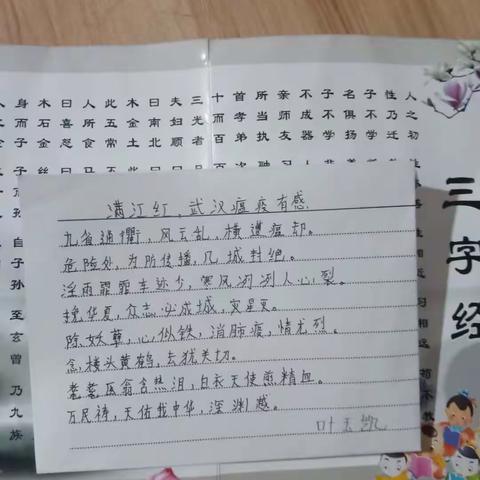 三字经
人之初
性乃迁
子不学
名俱扬
子不学
不成器
亲师友
所当执
首孝弟
十而百
三光者
夫妇顺
曰南北
木金土
此五常
人所食
曰喜怒
木石金
身而子
自子孙
至玄曾
乃九族
满江红、武汉瘟疫有感
九省通衢,风云乱,横遭瘟却。
危险处,为防传播,几城封绝。
淫雨霏霏车迹少,寒风冽冽人心裂。
挽华夏,众志必成城,灾星灭。
除妖孽,心似铁,消肺疫,情尤烈。
念楼头黄鹤,去犹关切。
耄耋医翁含热泪,白衣天使煎精血。
万民祷,天佑我中华,深渊越。
叶玉凯